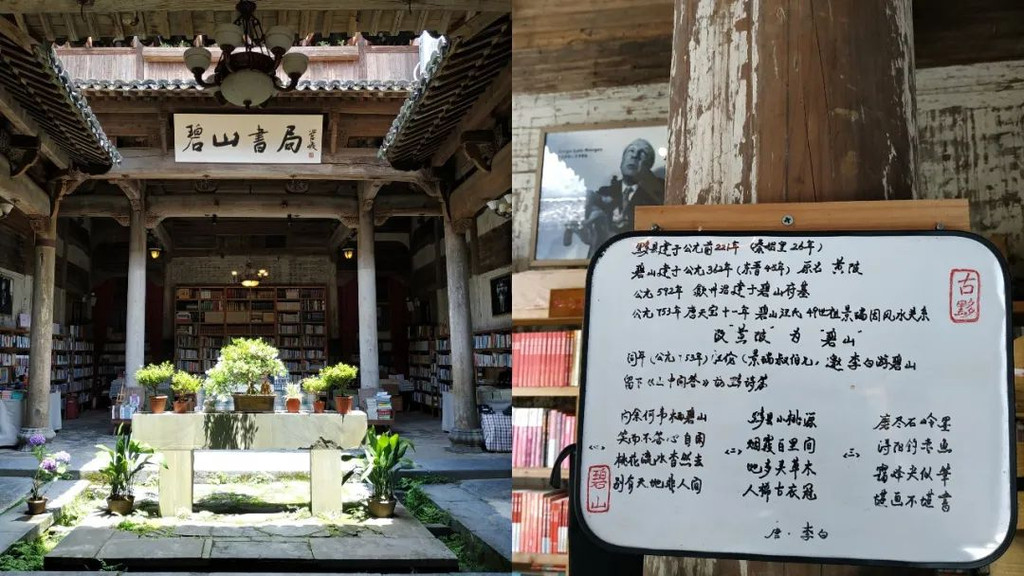 碧山書局
黟县建于公元前221年（秦始皇26年）
碧山建于公元362年（东晋45年）原名 黄陂
公元592年 歙州治建于碧山
公元753年唐天宝十一年 碧山汪氏49世祖景瑞因风水关系
改"黄陂"为"碧山"
同年（公元753年）汪伦（景瑞叔伯兄，邀李白游碧山
留下《山中问答》访黟诗篇
<一>
问余何事栖碧山
笑而不答心自闲
桃花流水杳然去
别有天地非人间
<二>
黟县小桃源
烟霞百里间
地多灵草木
人 古衣冠
<三>
磨尽石岭墨
浔阳钓赤鱼
霭峰尖似笔
堪画不堪书
唐·李白
古黟
碧山